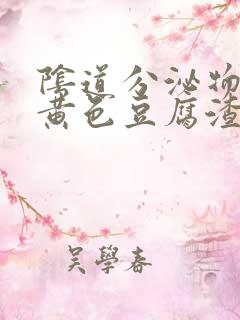 陰道分泌物
黄色豆腐渣
吴學春